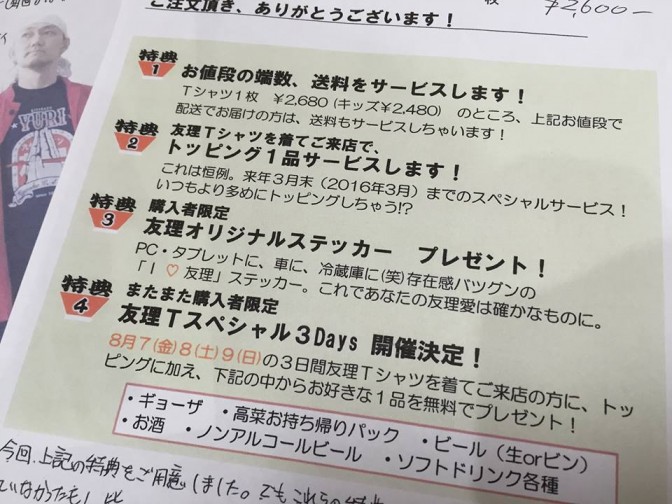 ご注文頂き、ありがとうございます！
枚 ¥2,600-
YURI
特典1
お値段の端数、送料をサービスします！
Tシャツ1枚 ¥2,680（キッズ¥2,480） のところ、上記お値段で
配送でお届けの方は、送料もサービスしちゃいます！
特典2
友理Tシャツを着てご来店で、
トッピング1品サービスします！
これは恒例。来年3月末（2016年3月）までのスペシャルサービス！
いつもより多めにトッピングしちゃう!?
特典3
購入者限定
友理オリジナルステッカー プレゼント！
PC・タブレットに、車に、冷蔵庫に(笑)存在感バツグンの
「I ♡ 友理」ステッカー。これであなたの友理愛は確かなものに。
特典4
またまた購入者限定
友理Tスペシャル3Days 開催決定！
8月7(金)8(土)9(日)の3日間友理Tシャツを着てご来店の方に、トッ
ピングに加え、下記の中からお好きな1品を無料でプレゼント！
・ギョーザ ・高菜お持ち帰りパック ・ビール（生orビン）
・お酒 ・ノンアルコールビール ・ソフトドリンク各種
今回、上記の特典をご用意しました。